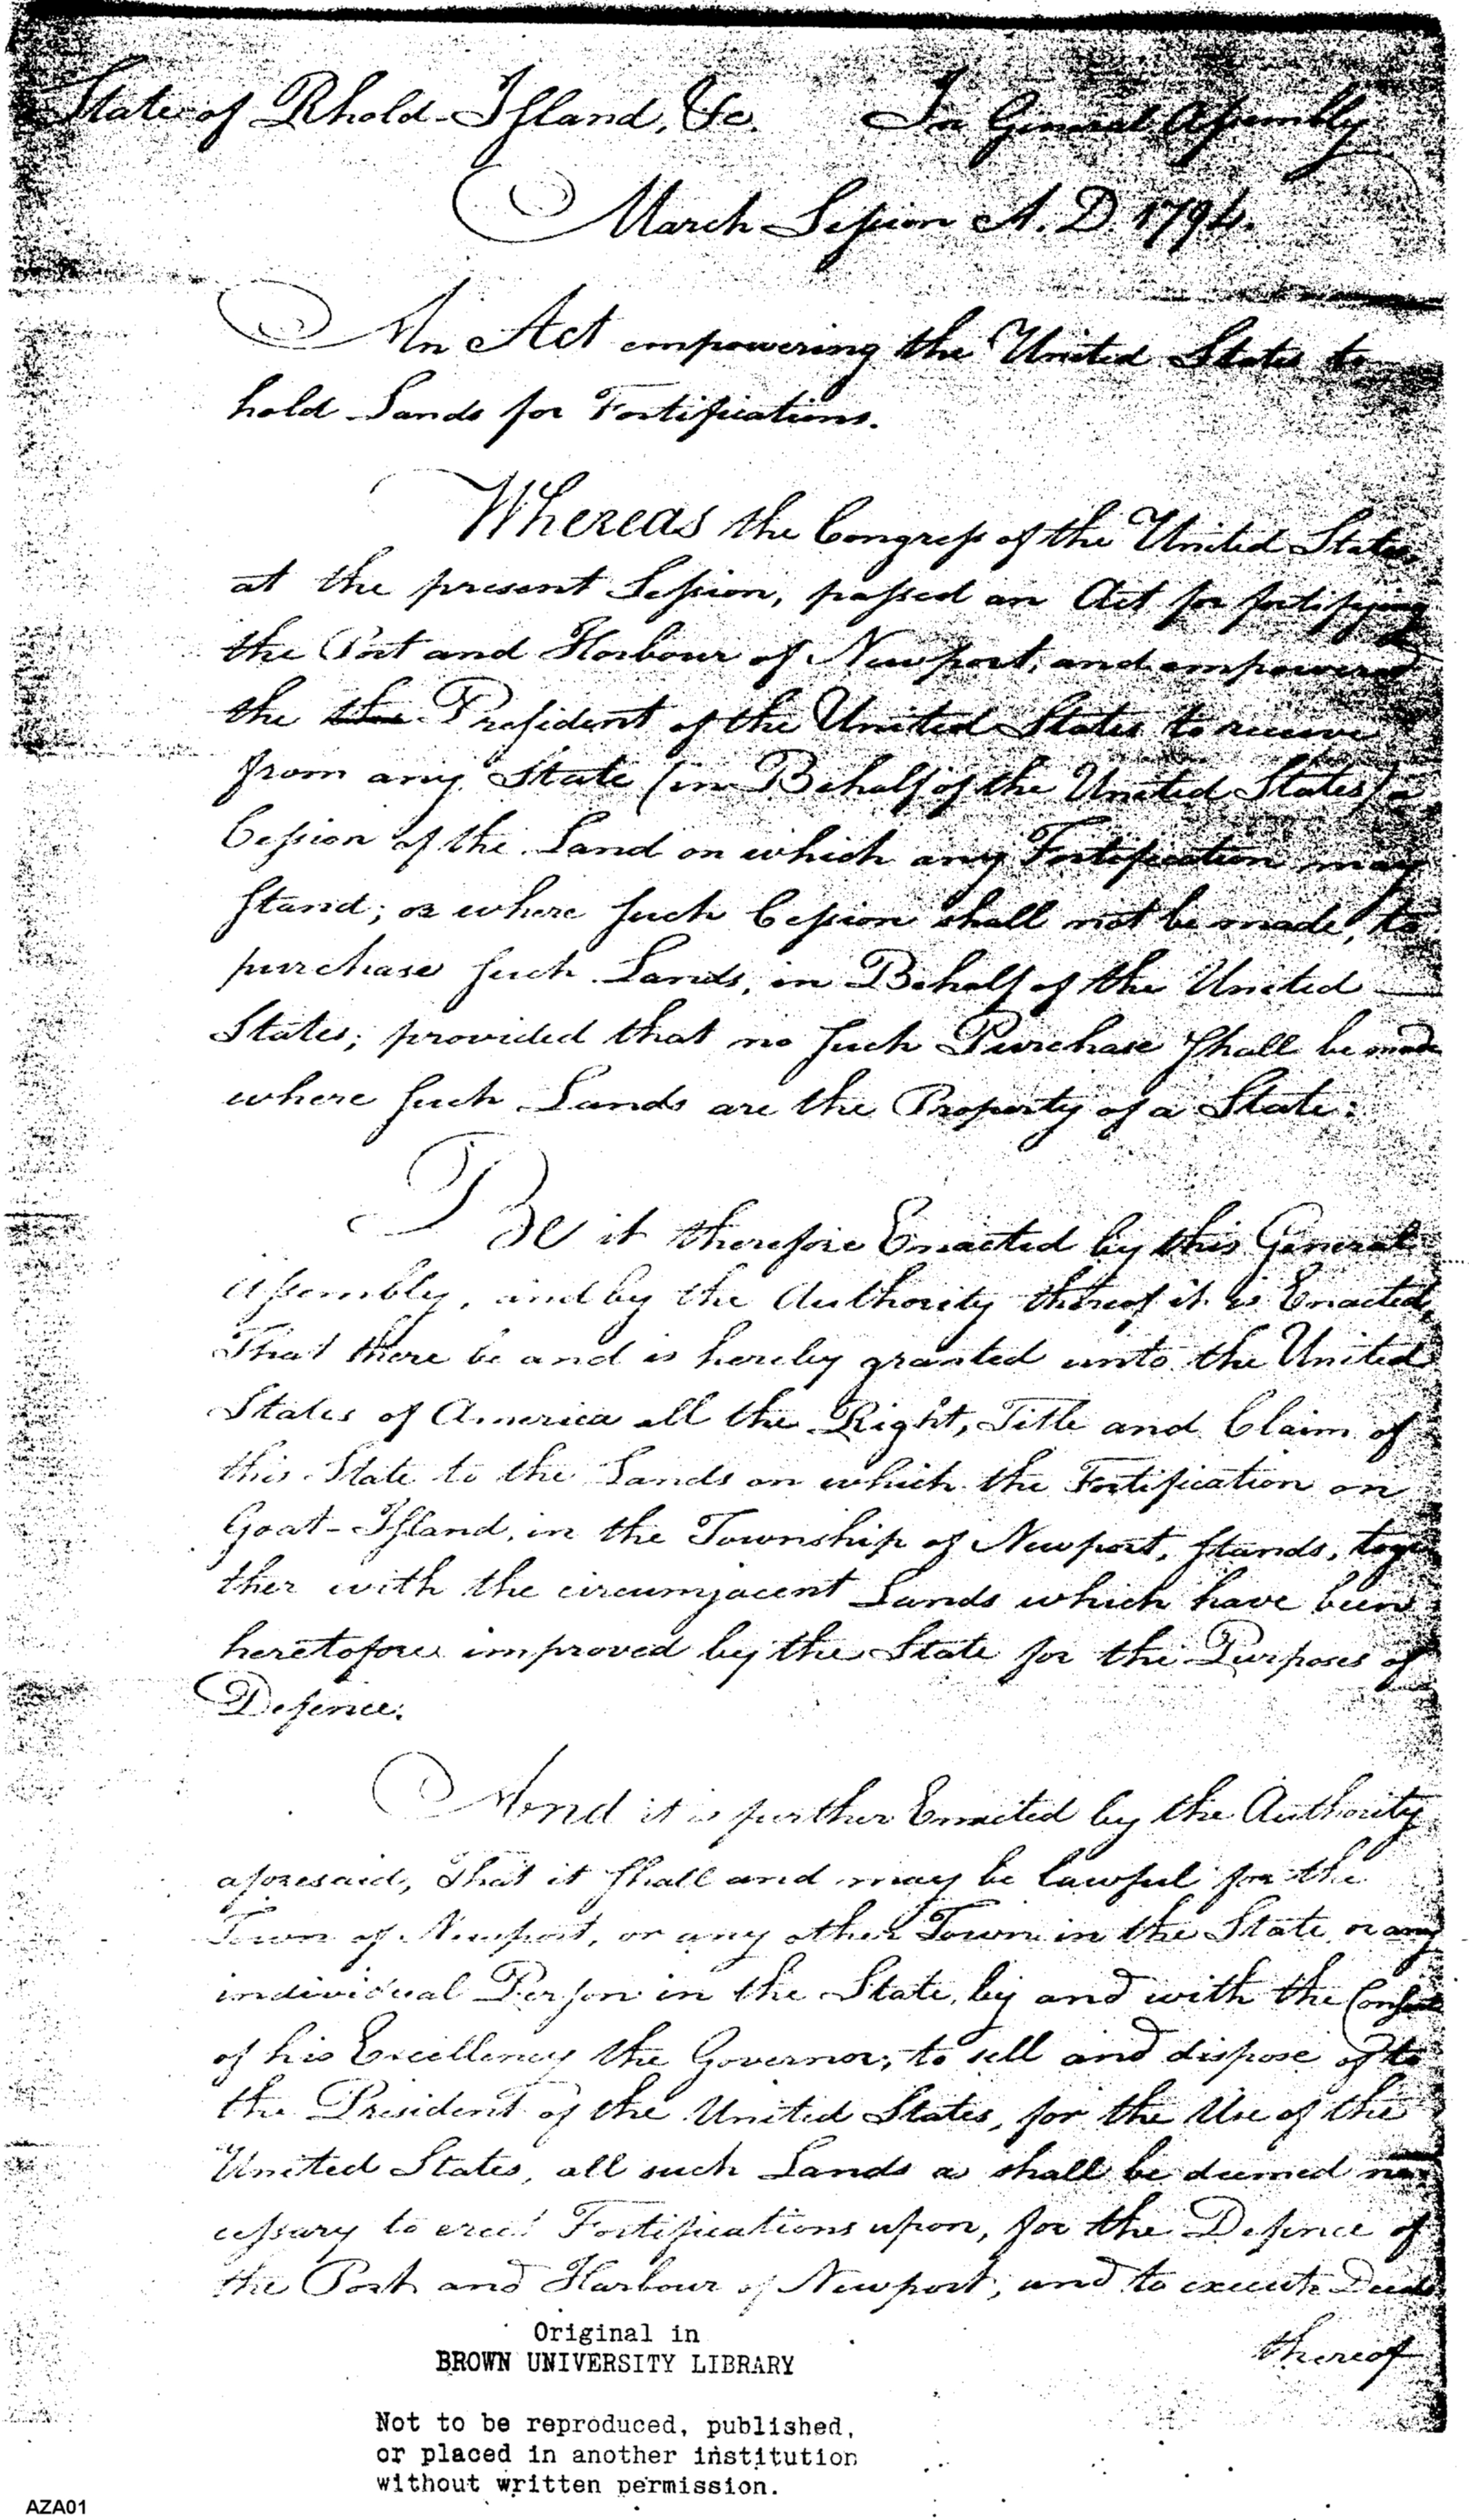 State of Rhold-Island, &c. In General Assembly
March Session A. D. 1794.
An Act empowering the United States to
hold Lands for Fortifications.
Whereas the Congress of the United States
at the present Session, passed an Act for fortifying
the Port and Harbour of Newport, and empowered
the the President of the United States to receive
from any State (in Behalf of the United States) a
Cession of the Land on which any Fortification may
stand; or where such Cession shall not be made, to
purchase such Lands, in Behalf of the United
States; provided that no such Purchase shall be made
where such Lands are the Property of a State:
Be it therefore Enacted by this General
Assembly, and by the Authority thereof it is Enacted,
That there be and is hereby granted unto the United
States of America all the Right, Title and Claim of
this State to the Lands on which the Fortification on
Goat-Island, in the Township of Newport, stands, toge
ther with the circumjacent Lands which have been
heretofore improved by the State for the Purposes of
Defence.
And it is further Enacted by the Authority
aforesaid, That it shall and may be lawful for the
Town of Newport, or any other Town in the State, or any
individual Person in the State, by and with the Consent
of his Excellency the Governor, to sell and dispose of to
the President of the United States, for the Use of the
United States, all such Lands as shall be deemed ne
cessary to erect Fortifications upon, for the Defence of
the Port and Harbour of Newport; and to execute Deeds
thereof
Original in
BROWN UNIVERSITY LIBRARY
Not to be reproduced, published,
or placed in another institution
without written permission.
AZA01